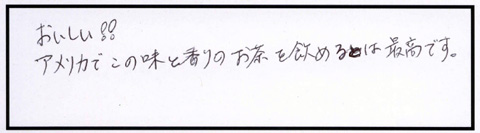 おいしい!!
アメリカでこの味と香りのお茶を飲めるとは最高です。